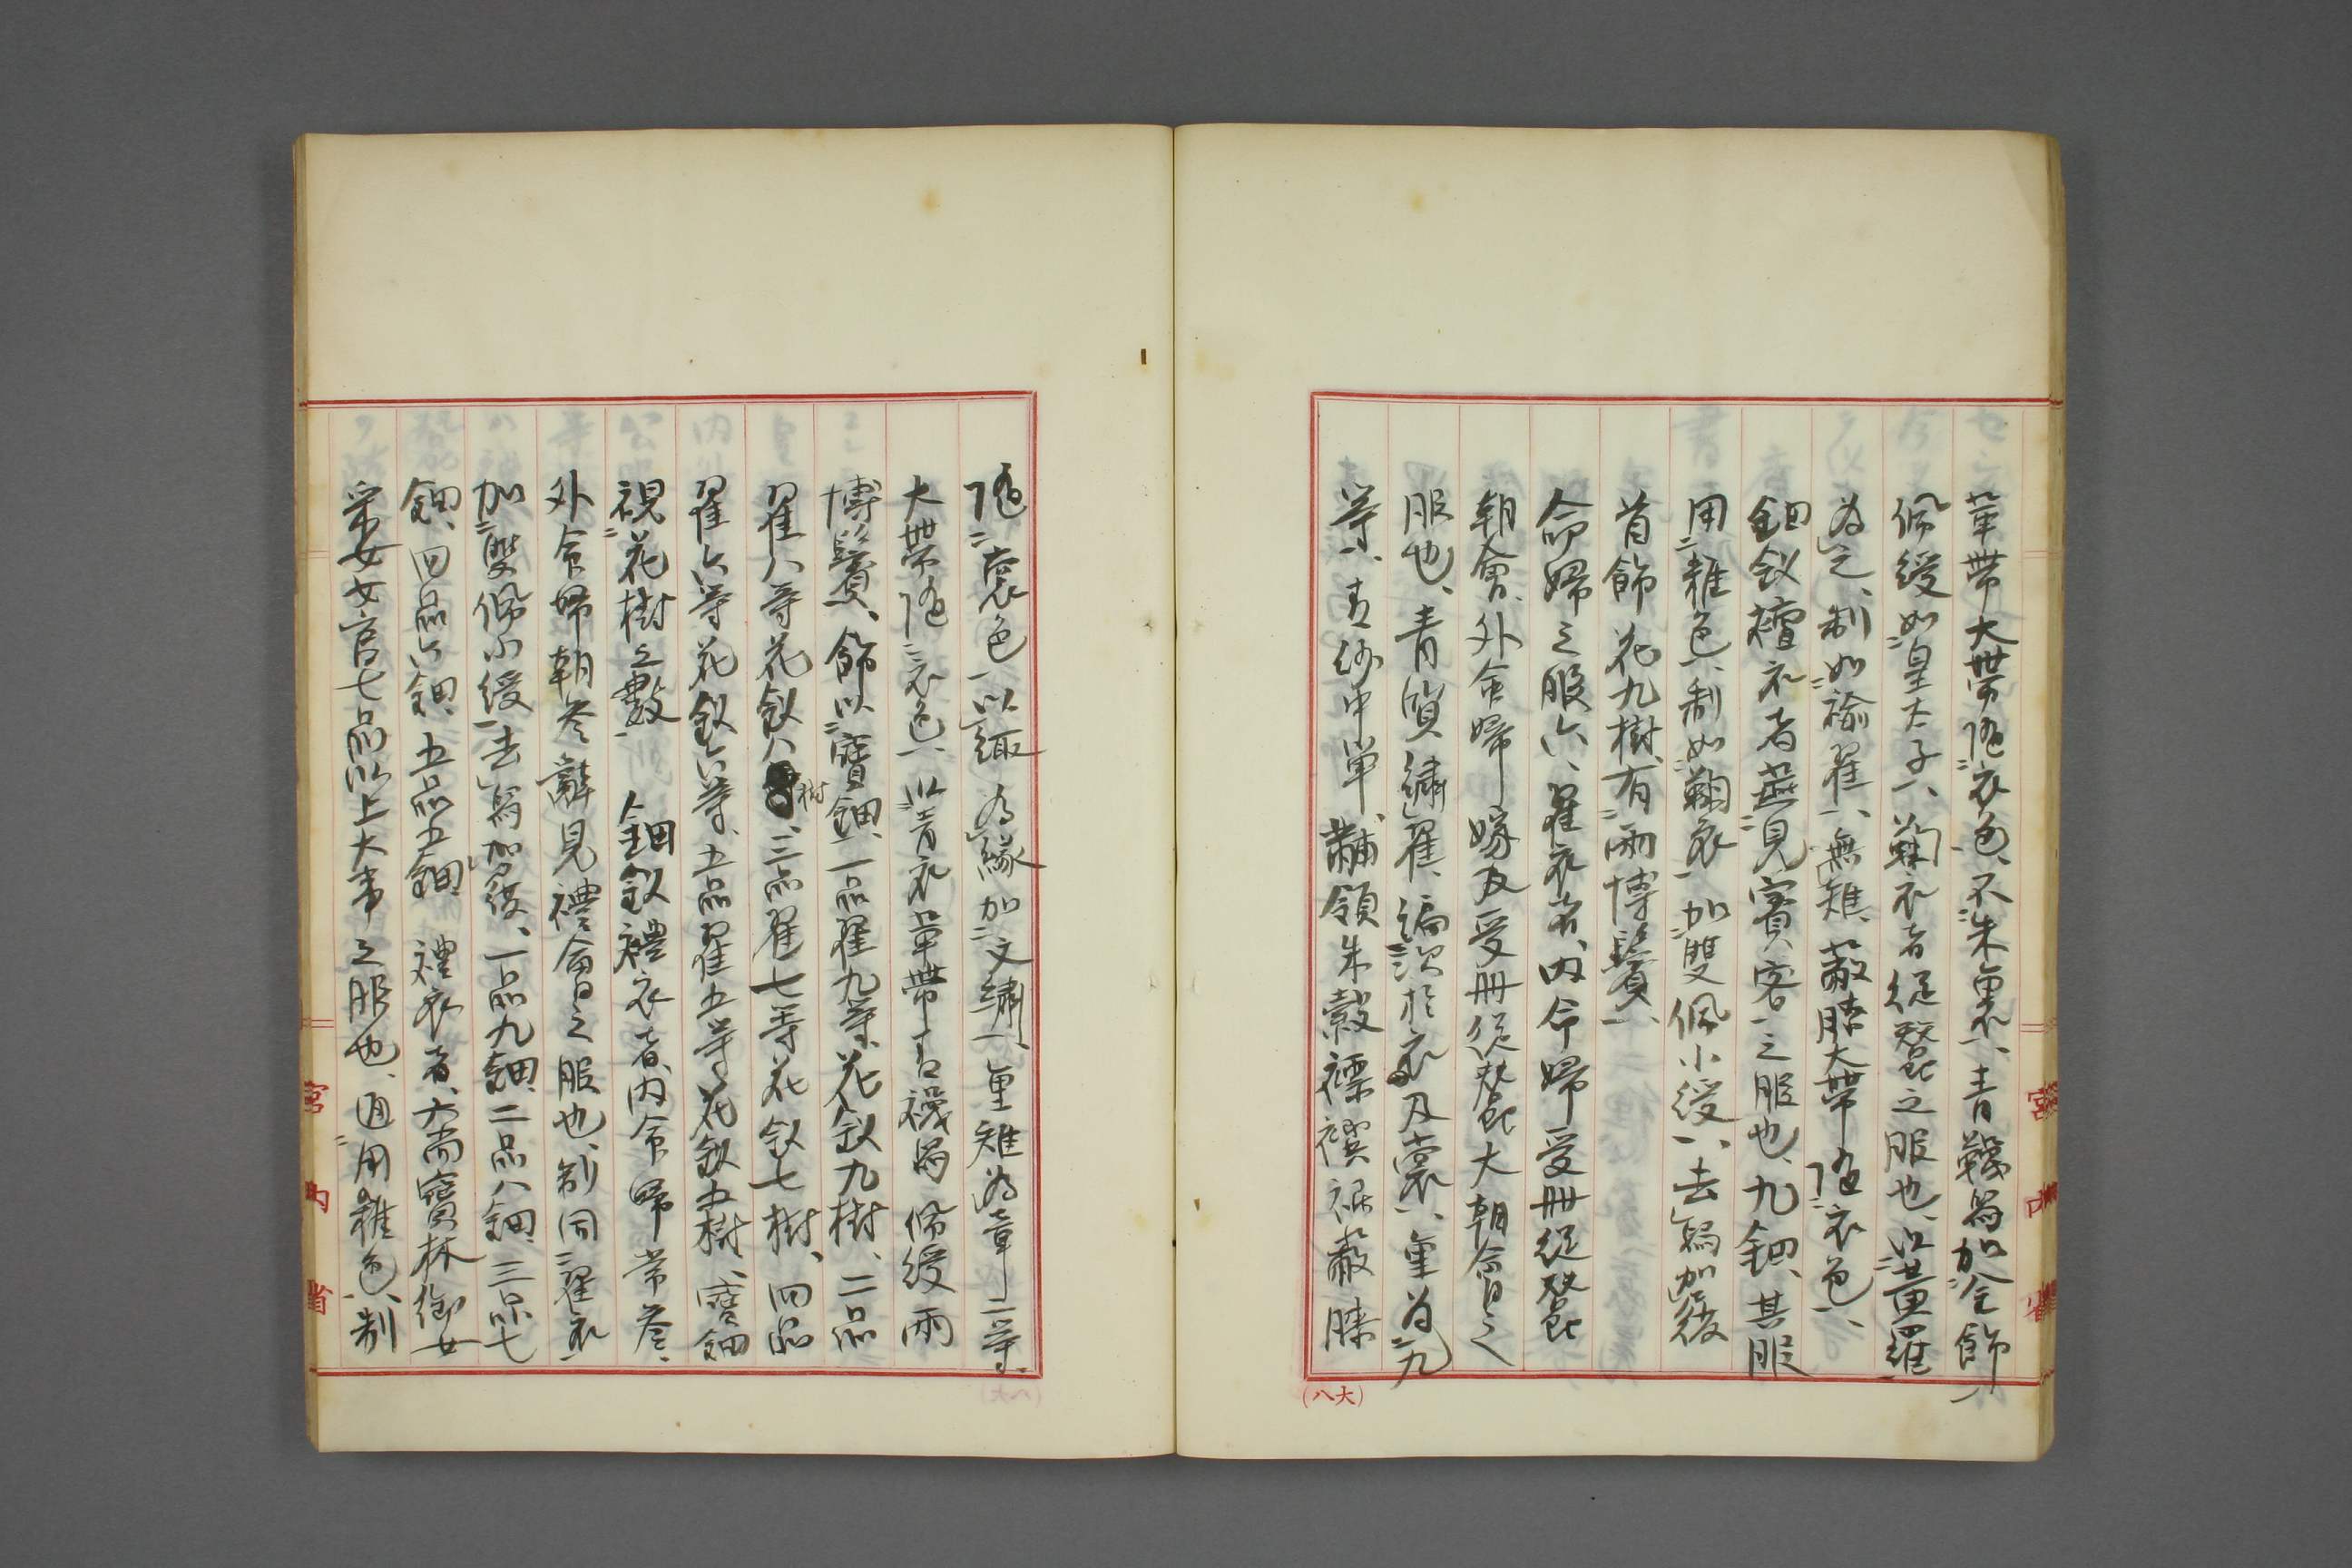 革帶大帶隨衣色、不朱裏、青韈舄加金飾
佩綬如皇太子、鞠衣者從蠶之服也、以黃羅
為之、制如褕翟、無雉、蔽膝大帶隨衣色、
鈿釵襢衣者燕見賓客之服也、九鈿、其服
用雜色、制如鞠衣、加雙佩小綬、去舄加履
首飾花九樹、有兩博鬢
命婦之服六、翟衣者、內命婦受冊從蠶
朝會、外命婦嫁及受冊從蠶大朝會之
服也、青質繡翟、編次於衣及裳、重為九
等、青紗中單、黼領朱縠褾襈裾蔽膝
隨裳色、以緅為緣、加文繡、重雉為章二等、
大帶隨衣色、以青衣革帶青韈舄佩綬兩
博鬢、飾以寶鈿、一品翟九等、花釵九樹、二品
翟八等花釵八樹、三品翟七等花釵七樹、四品
翟六等花釵六等、五品翟五等花釵五樹、寶鈿
視花樹之數　鈿釵禮衣者、內命婦常參、
外命婦朝參辭見禮會之服也、制同翟衣
加雙佩小綬去舄加履、一品九鈿、二品八鈿、三品七
鈿、四品六鈿、五品五鈿　禮衣者、六尚寶林御女
采女女官七品以上大事之服也、通用雜色、制
宮內省
宮內省
（大八）